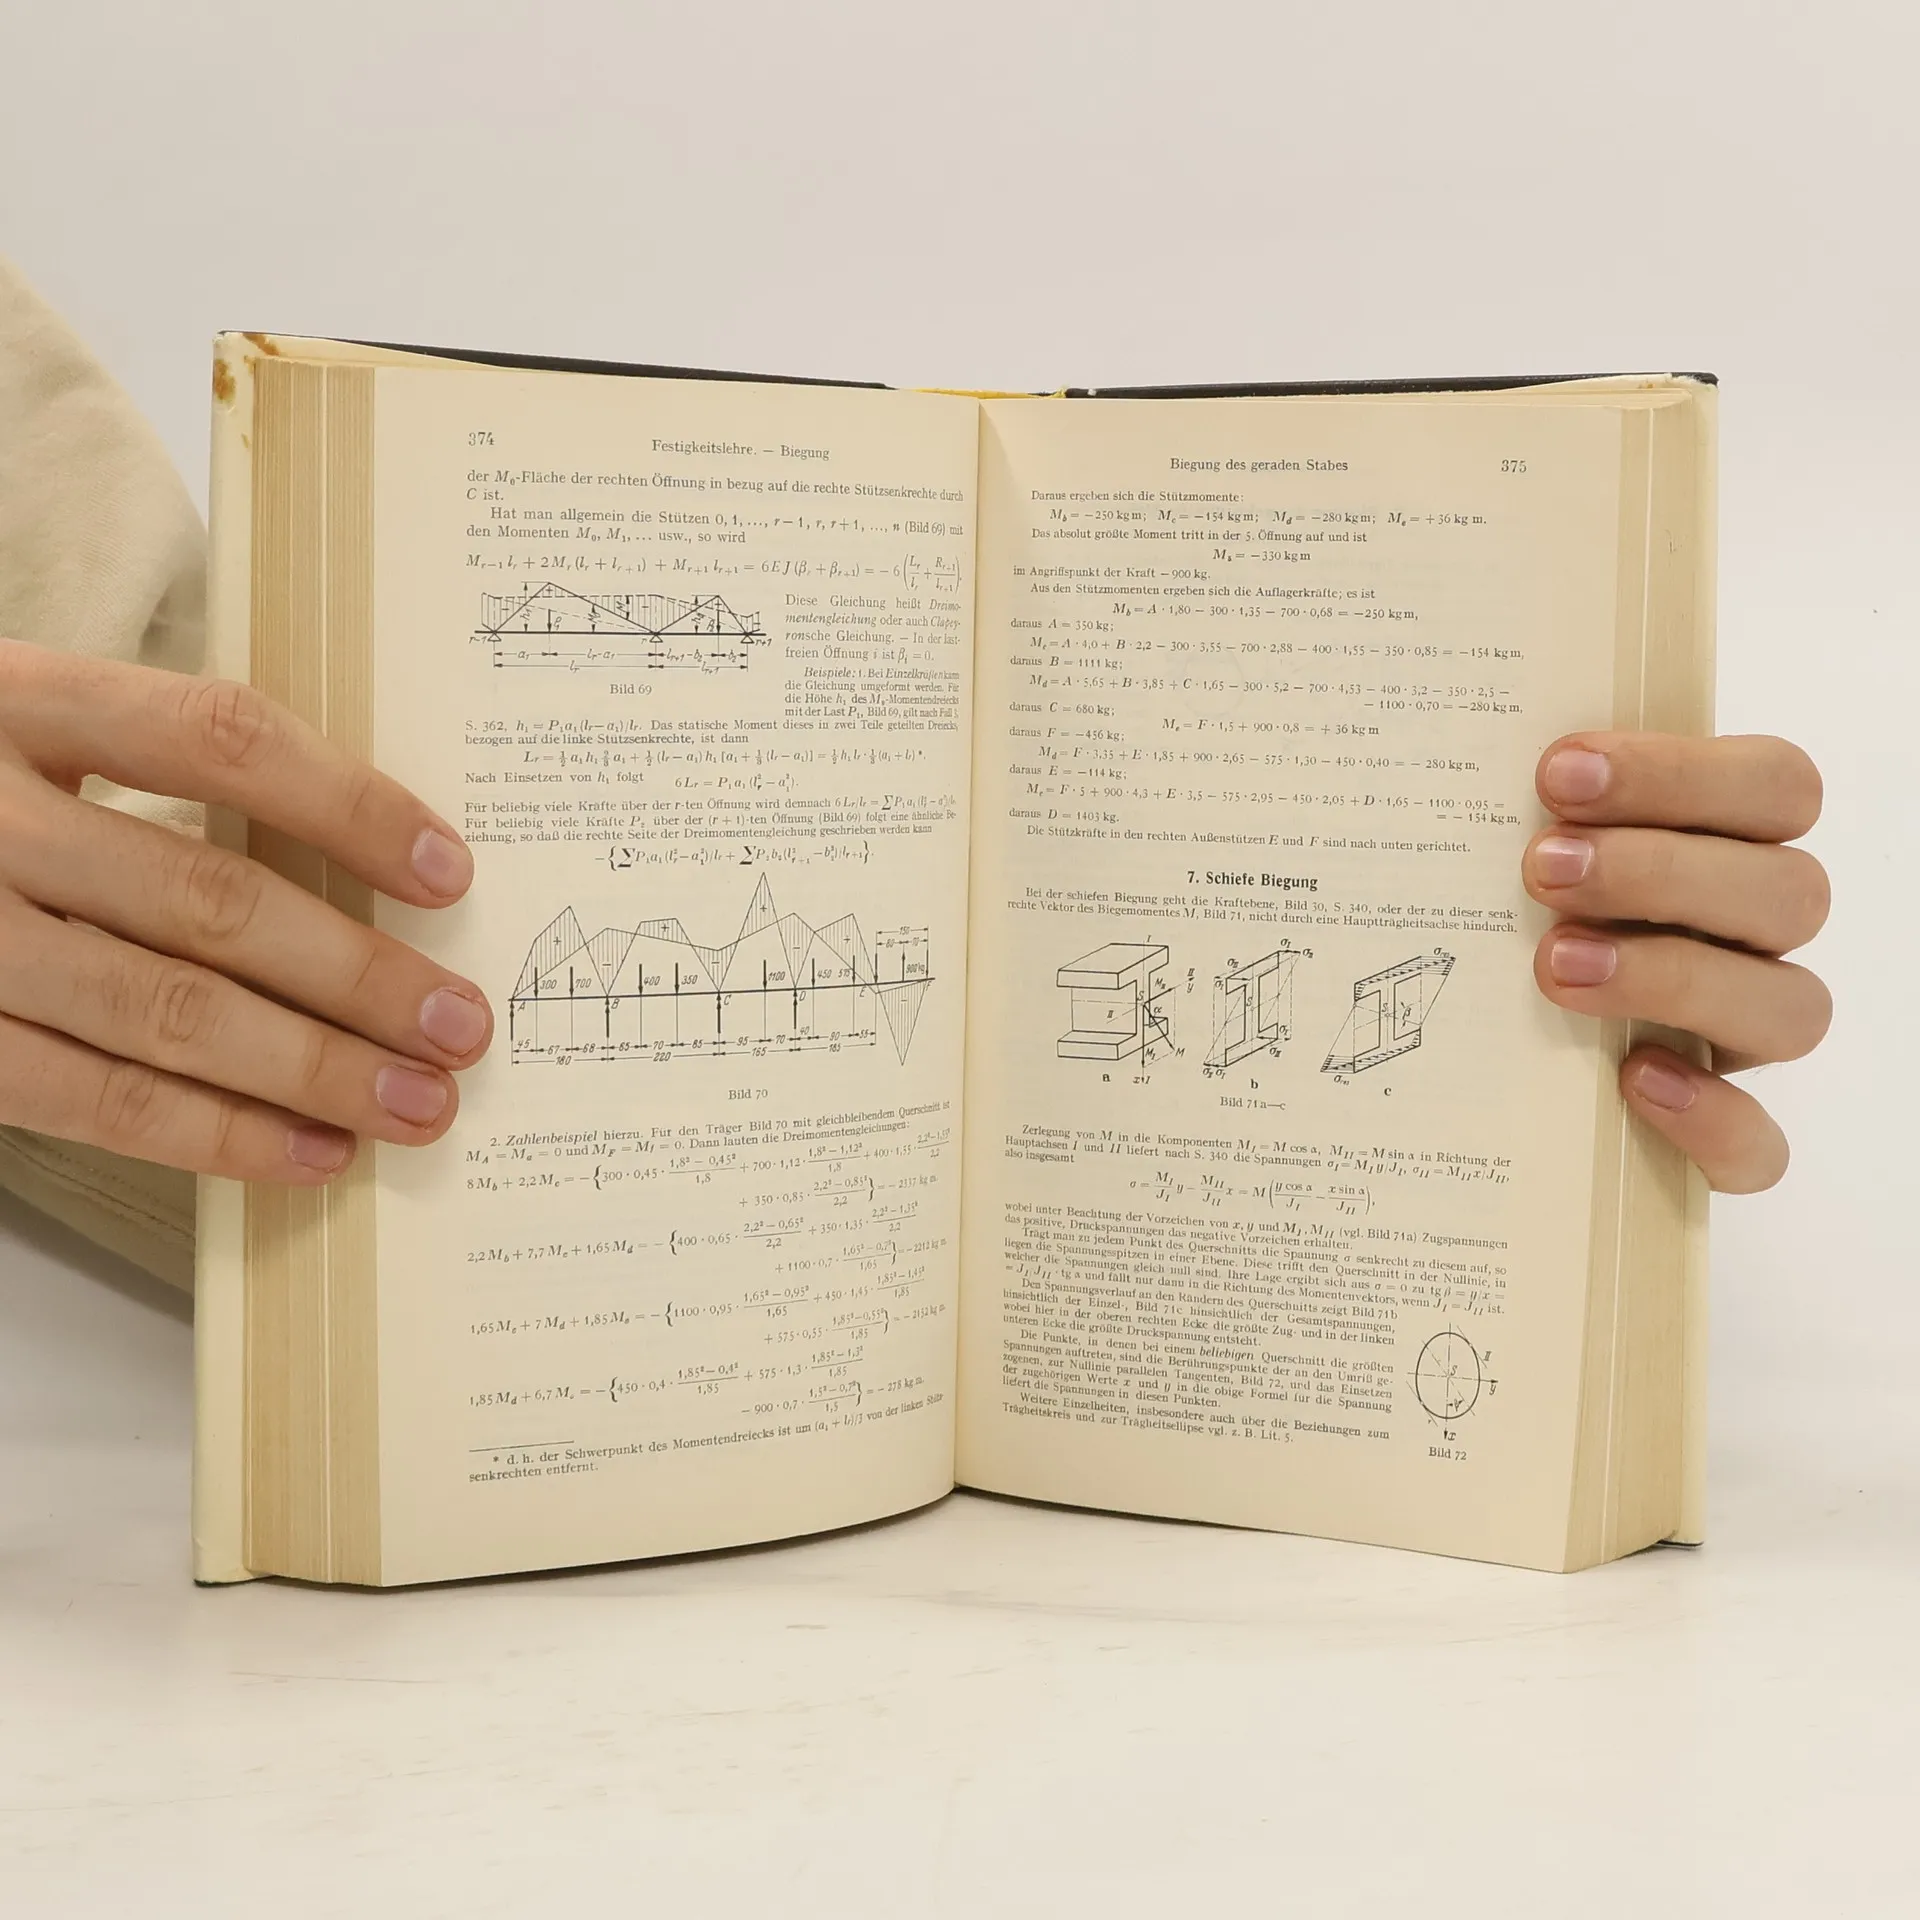 374
Festigkeitslehre. — Biegung
der M₀-Fläche der rechten Öffnung in bezug auf die rechte Stützsenkrechte durch
C ist.
Hat man allgemein die Stützen 0, 1, ..., r−1, r, r+1, ..., n (Bild 69) mit
den Momenten M₀, M₁, ... usw., so wird
Mᵣ₋₁ lᵣ + 2Mᵣ (lᵣ + lᵣ₊₁) + Mᵣ₊₁ lᵣ₊₁ = 6EJ(βᵣ + βᵣ₊₁) = −6(Lᵣ/lᵣ + Rᵣ₊₁/lᵣ₊₁).
Diese Gleichung heißt Dreimo-
mentengleichung oder auch Clapey-
ronsche Gleichung. — In der last-
freien Öffnung i ist βᵢ = 0.
Bild 69
Beispiele: 1. Bei Einzelkräften kann
die Gleichung umgeformt werden. Für
die Höhe h₁ des M₀-Momentendreiecks
mit der Last P₁, Bild 69, gilt nach Fall 3,
S. 362, h₁ = P₁a₁(lᵣ−a₁)/lᵣ. Das statische Moment dieses in zwei Teile geteilten Dreiecks,
bezogen auf die linke Stützsenkrechte, ist dann
Lᵣ = ½ a₁h₁ ⅔ a₁ + ½ (lᵣ − a₁) h₁ [a₁ + ⅓ (lᵣ − a₁)] = ½ h₁ lᵣ · ⅓ (a₁ + lᵣ) *.
Nach Einsetzen von h₁ folgt 6Lᵣ = P₁a₁(lᵣ² − a₁²).
Für beliebig viele Kräfte über der r-ten Öffnung wird demnach 6Lᵣ/lᵣ = ∑P₁a₁(lᵣ² − a₁²)/lᵣ.
Für beliebig viele Kräfte P₂ über der (r + 1)-ten Öffnung (Bild 69) folgt eine ähnliche Be-
ziehung, so daß die rechte Seite der Dreimomentengleichung geschrieben werden kann
−{∑P₁a₁(lᵣ²−a₁²)/lᵣ + ∑P₂b₂(lᵣ₊₁²−b₂²)/lᵣ₊₁}.
150
80 70
300 700 400 350 1100 450 575 900kg
A B C D E F
45 67 68 65 70 85 95 70 40 90 55
180 220 165 185
Bild 70
2. Zahlenbeispiel hierzu. Für den Träger Bild 70 mit gleichbleibendem Querschnitt ist
M_A = M_a = 0 und M_F = M_f = 0. Dann lauten die Dreimomentengleichungen:
8M_b + 2,2M_c = −{300 · 0,45 · (1,8² − 0,45²)/1,8 + 700 · 1,12 · (1,8² − 1,12²)/1,8 + 400 · 1,55 · (2,2² − 1,55²)/2,2
+ 350 · 0,85 · (2,2² − 0,85²)/2,2} = − 2337 kg m.
2,2M_b + 7,7M_c + 1,65M_d = −{400 · 0,65 · (2,2² − 0,65²)/2,2 + 350 · 1,35 · (2,2² − 1,35²)/2,2
+ 1100 · 0,7 · (1,65² − 0,7²)/1,65} = − 2212 kg m.
1,65M_c + 7M_d + 1,85M_e = −{1100 · 0,95 · (1,65² − 0,95²)/1,65 + 450 · 1,45 · (1,85² − 1,45²)/1,85
+ 575 · 0,55 · (1,85² − 0,55²)/1,85} = − 2152 kg m.
1,85M_d + 6,7M_e = −{450 · 0,4 · (1,85² − 0,4²)/1,85 + 575 · 1,3 · (1,85² − 1,3²)/1,85
− 900 · 0,7 · (1,5² − 0,7²)/1,5} = − 278 kg m.
* d. h. der Schwerpunkt des Momentendreiecks ist um (a₁ + lᵣ)/3 von der linken Stütz-
senkrechten entfernt.
Biegung des geraden Stabes
375
Daraus ergeben sich die Stützmomente:
M_b = −250 kg m; M_c = −154 kg m; M_d = −280 kg m; M_e = +36 kg m.
Das absolut größte Moment tritt in der 5. Öffnung auf und ist
M₅ = −330 kg m
im Angriffspunkt der Kraft −900 kg.
Aus den Stützmomenten ergeben sich die Auflagerkräfte; es ist
M_b = A · 1,80 − 300 · 1,35 − 700 · 0,68 = −250 kg m,
daraus A = 350 kg;
M_c = A · 4,0 + B · 2,2 − 300 · 3,55 − 700 · 2,88 − 400 · 1,55 − 350 · 0,85 = −154 kg m,
daraus B = 1111 kg;
M_d = A · 5,65 + B · 3,85 + C · 1,65 − 300 · 5,2 − 700 · 4,53 − 400 · 3,2 − 350 · 2,5 −
− 1100 · 0,70 = −280 kg m,
daraus C = 680 kg;
M_e = F · 1,5 + 900 · 0,8 = + 36 kg m
daraus F = −456 kg;
M_d = F · 3,35 + E · 1,85 + 900 · 2,65 − 575 · 1,30 − 450 · 0,40 = − 280 kg m,
daraus E = −114 kg;
M_c = F · 5 + 900 · 4,3 + E · 3,5 − 575 · 2,95 − 450 · 2,05 + D · 1,65 − 1100 · 0,95 =
= − 154 kg m,
daraus D = 1403 kg.
Die Stützkräfte in den rechten Außenstützen E und F sind nach unten gerichtet.
7. Schiefe Biegung
Bei der schiefen Biegung geht die Kraftebene, Bild 30, S. 340, oder der zu dieser senk-
rechte Vektor des Biegemomentes M, Bild 71, nicht durch eine Hauptträgheitsachse hindurch.
a b c
Bild 71 a—c
Zerlegung von M in die Komponenten M_I = M cos α, M_II = M sin α in Richtung der
Hauptachsen I und II liefert nach S. 340 die Spannungen σ_I = M_I y/J_I, σ_II = M_II x/J_II,
also insgesamt
σ = M_I/J_I y − M_II/J_II x = M (y cos α/J_I − x sin α/J_II),
wobei unter Beachtung der Vorzeichen von x, y und M_I, M_II (vgl. Bild 71a) Zugspannungen
das positive, Druckspannungen das negative Vorzeichen erhalten.
Trägt man zu jedem Punkt des Querschnitts die Spannung σ senkrecht zu diesem auf, so
liegen die Spannungsspitzen in einer Ebene. Diese trifft den Querschnitt in der Nullinie, in
welcher die Spannungen gleich null sind. Ihre Lage ergibt sich aus σ = 0 zu tg β = y/x =
= J_I/J_II · tg α und fällt nur dann in die Richtung des Momentenvektors, wenn J_I = J_II ist.
Den Spannungsverlauf an den Rändern des Querschnitts zeigt Bild 71b
hinsichtlich der Einzel-, Bild 71c hinsichtlich der Gesamtspannungen,
wobei hier in der oberen rechten Ecke die größte Zug- und in der linken
unteren Ecke die größte Druckspannung entsteht.
Die Punkte, in denen bei einem beliebigen Querschnitt die größten
Spannungen auftreten, sind die Berührungspunkte der an den Umriß ge-
zogenen, zur Nullinie parallelen Tangenten, Bild 72, und das Einsetzen
der zugehörigen Werte x und y in die obige Formel für die Spannung
liefert die Spannungen in diesen Punkten.
Weitere Einzelheiten, insbesondere auch über die Beziehungen zum
Trägheitskreis und zur Trägheitsellipse vgl. z. B. Lit. 5.
Bild 72